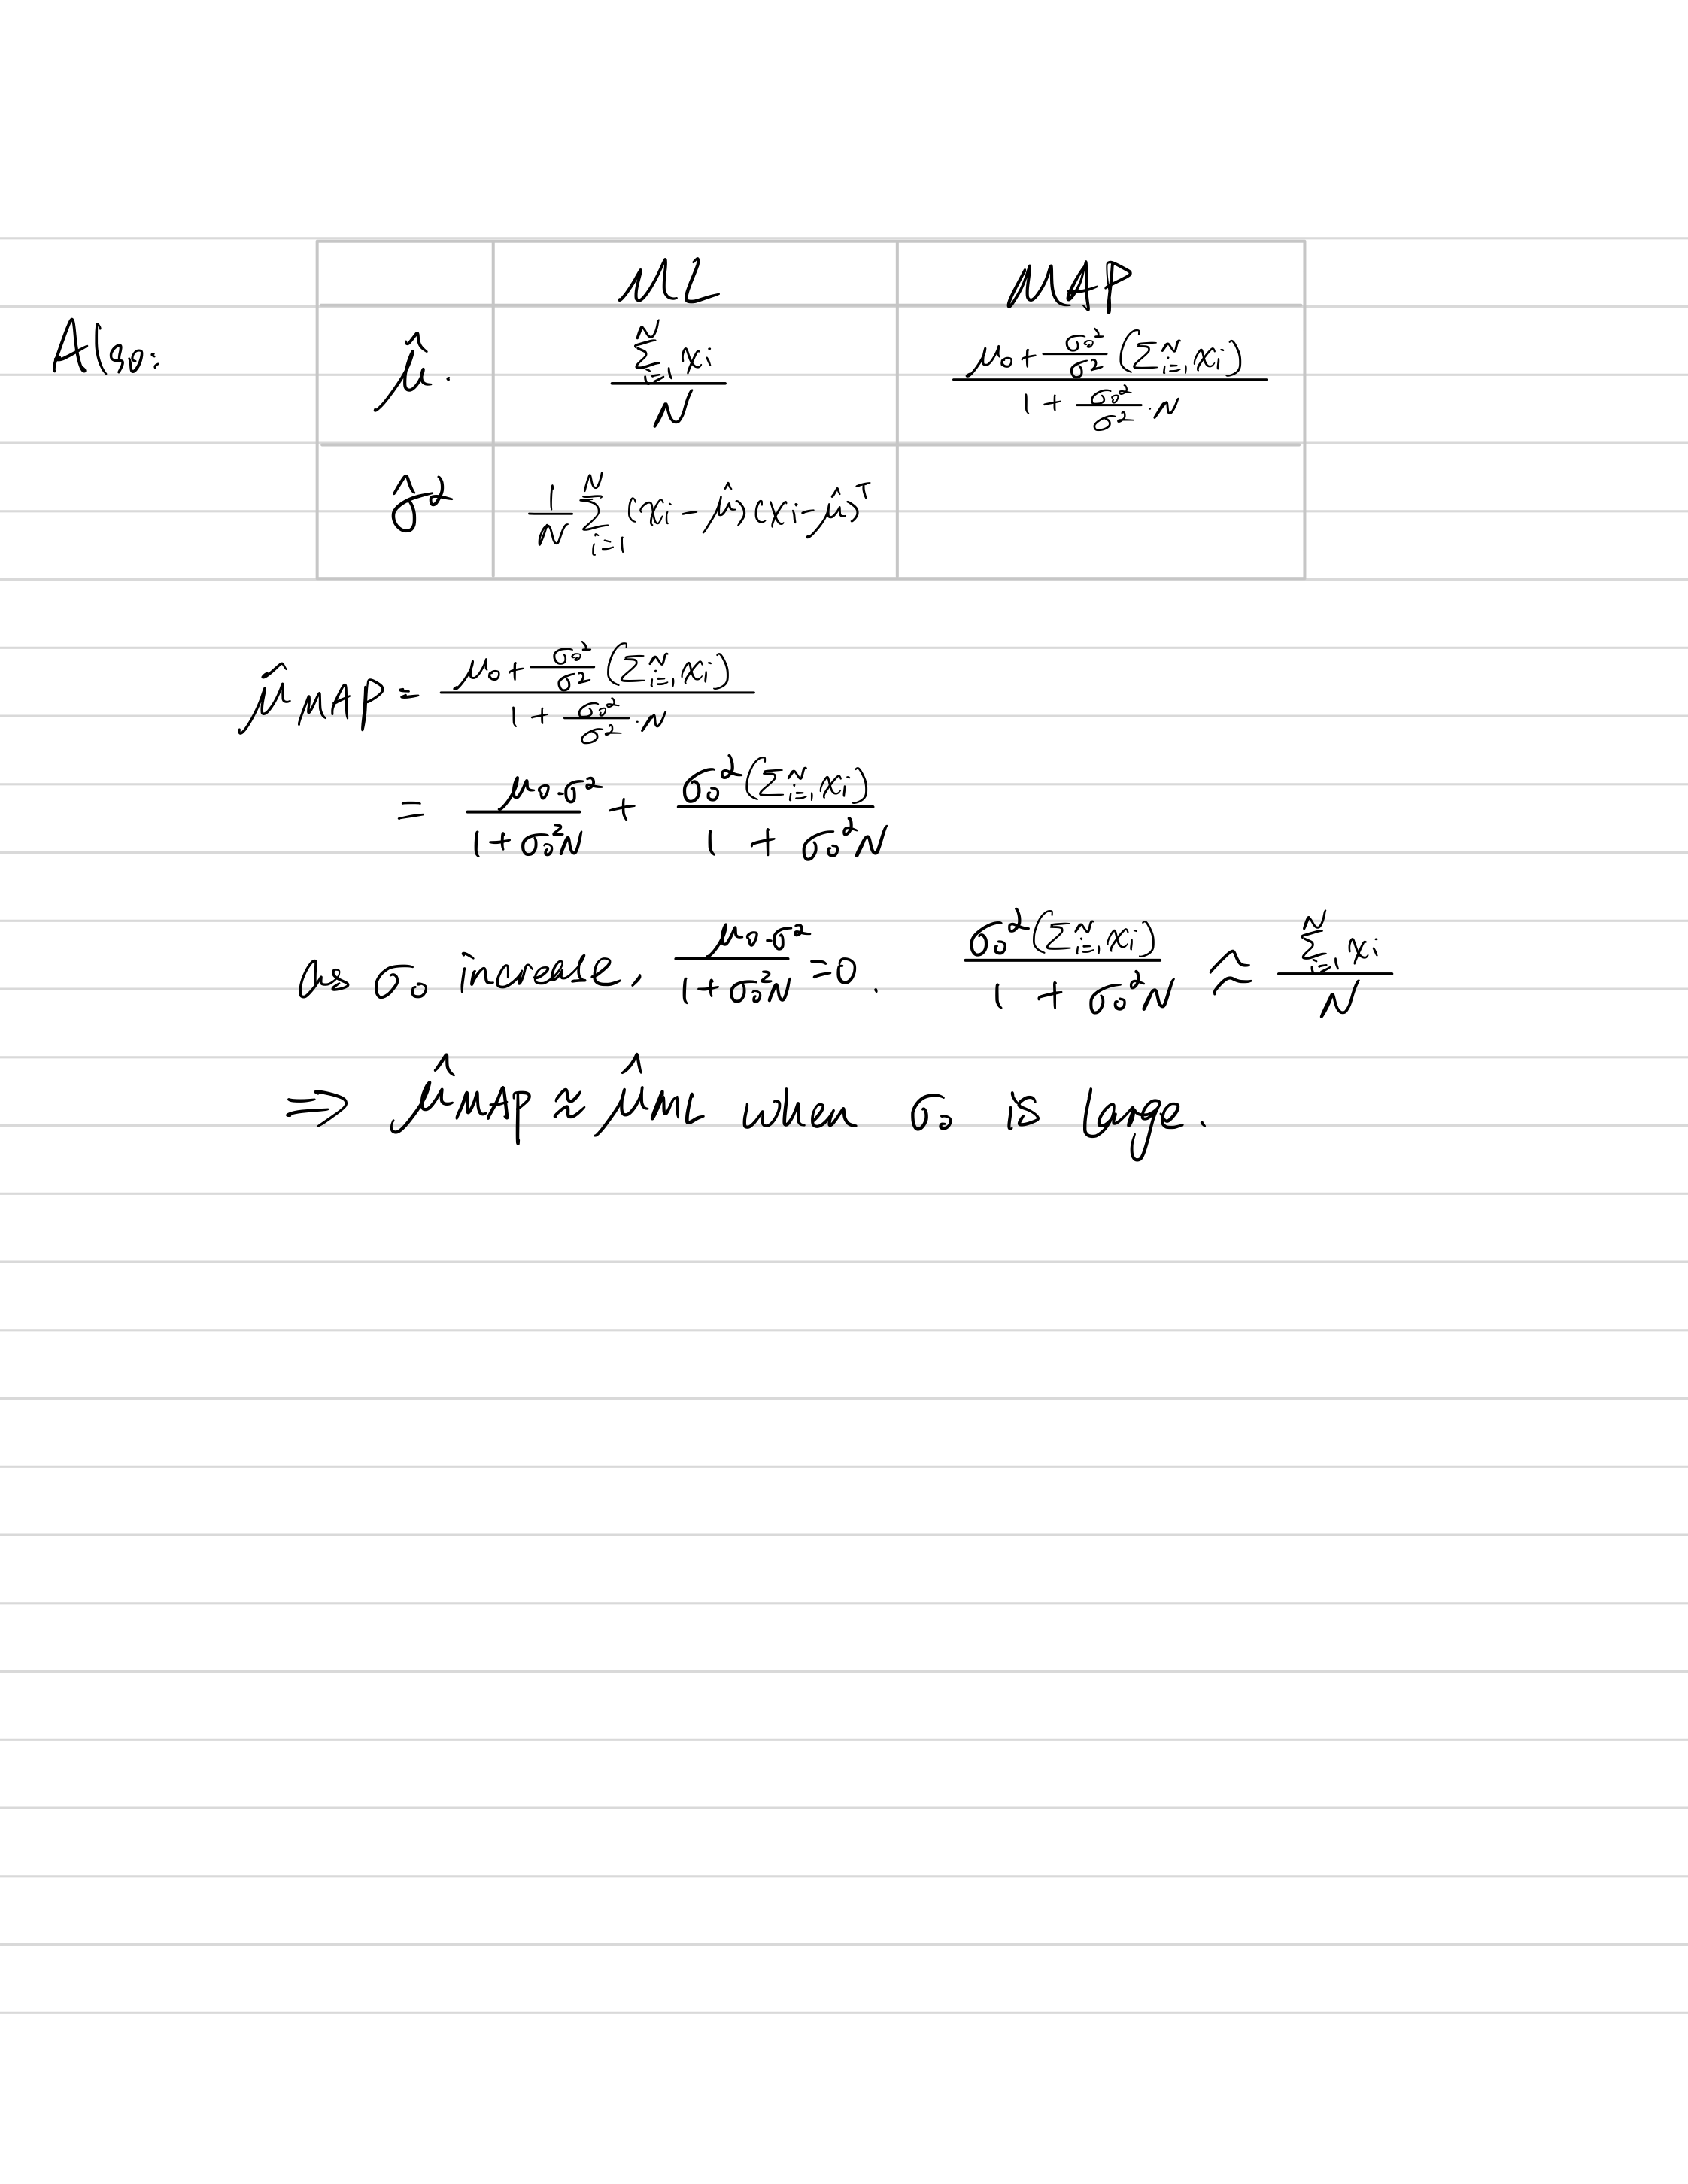 ML MAP
Algo: μ̂. \frac{\sum_{i=1}^{N} x_i}{N} \frac{μ_0 + \frac{σ_0^2}{σ^2}(\sum_{i=1}^{N} x_i)}{1 + \frac{σ_0^2}{σ^2} \cdot N}
σ̂^2 \frac{1}{N} \sum_{i=1}^{N} (x_i - μ̂)(x_i - μ̂)^T
μ̂_{MAP} = \frac{μ_0 + \frac{σ_0^2}{σ^2}(\sum_{i=1}^{N} x_i)}{1 + \frac{σ_0^2}{σ^2} \cdot N}
= \frac{μ_0 \cdot σ^2}{1 + σ_0^2 N} + \frac{σ_0^2(\sum_{i=1}^{N} x_i)}{1 + σ_0^2 N}
as σ_0 increase, \frac{μ_0 \cdot σ^2}{1 + σ_0^2 N} = 0. \frac{σ_0^2(\sum_{i=1}^{N} x_i)}{1 + σ_0^2 N} ≈ \frac{\sum_{i=1}^{N} x_i}{N}
⇒ μ̂_{MAP} ≈ μ̂_{ML} when σ_0 is large.